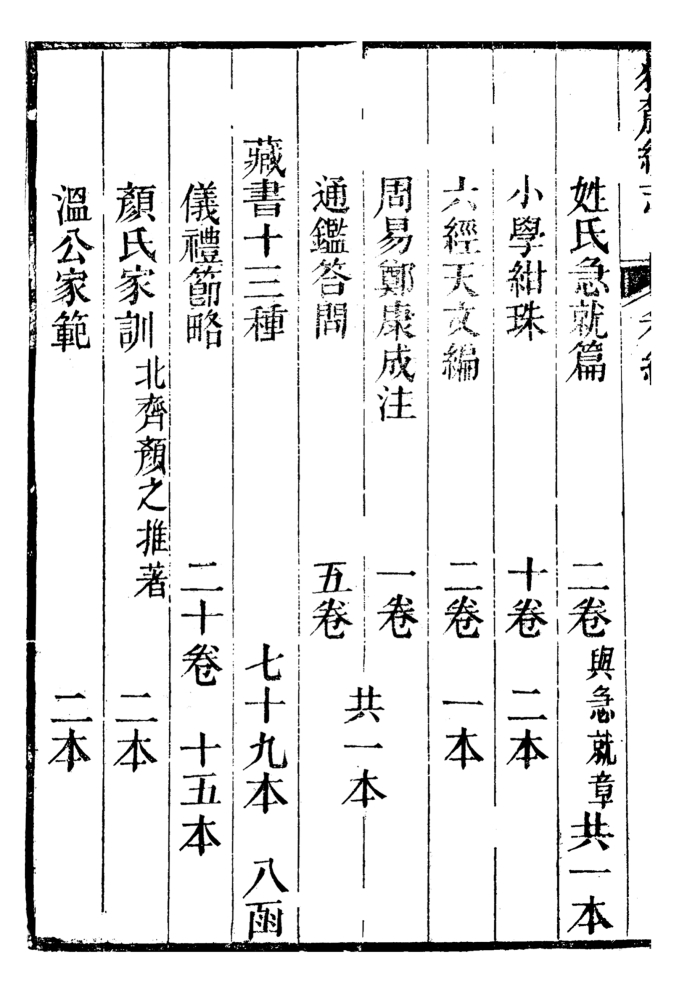 姓氏急就篇 二卷 與急就章共一本
小學紺珠 十卷 二本
六經天文編 二卷 一本
周易鄭康成注 一卷
通鑑答問 五卷
共一本
藏書十三種 七十九本 八函
儀禮節略 二十卷 十五本
顏氏家訓 北齊顏之推著 二本
溫公家範 二本